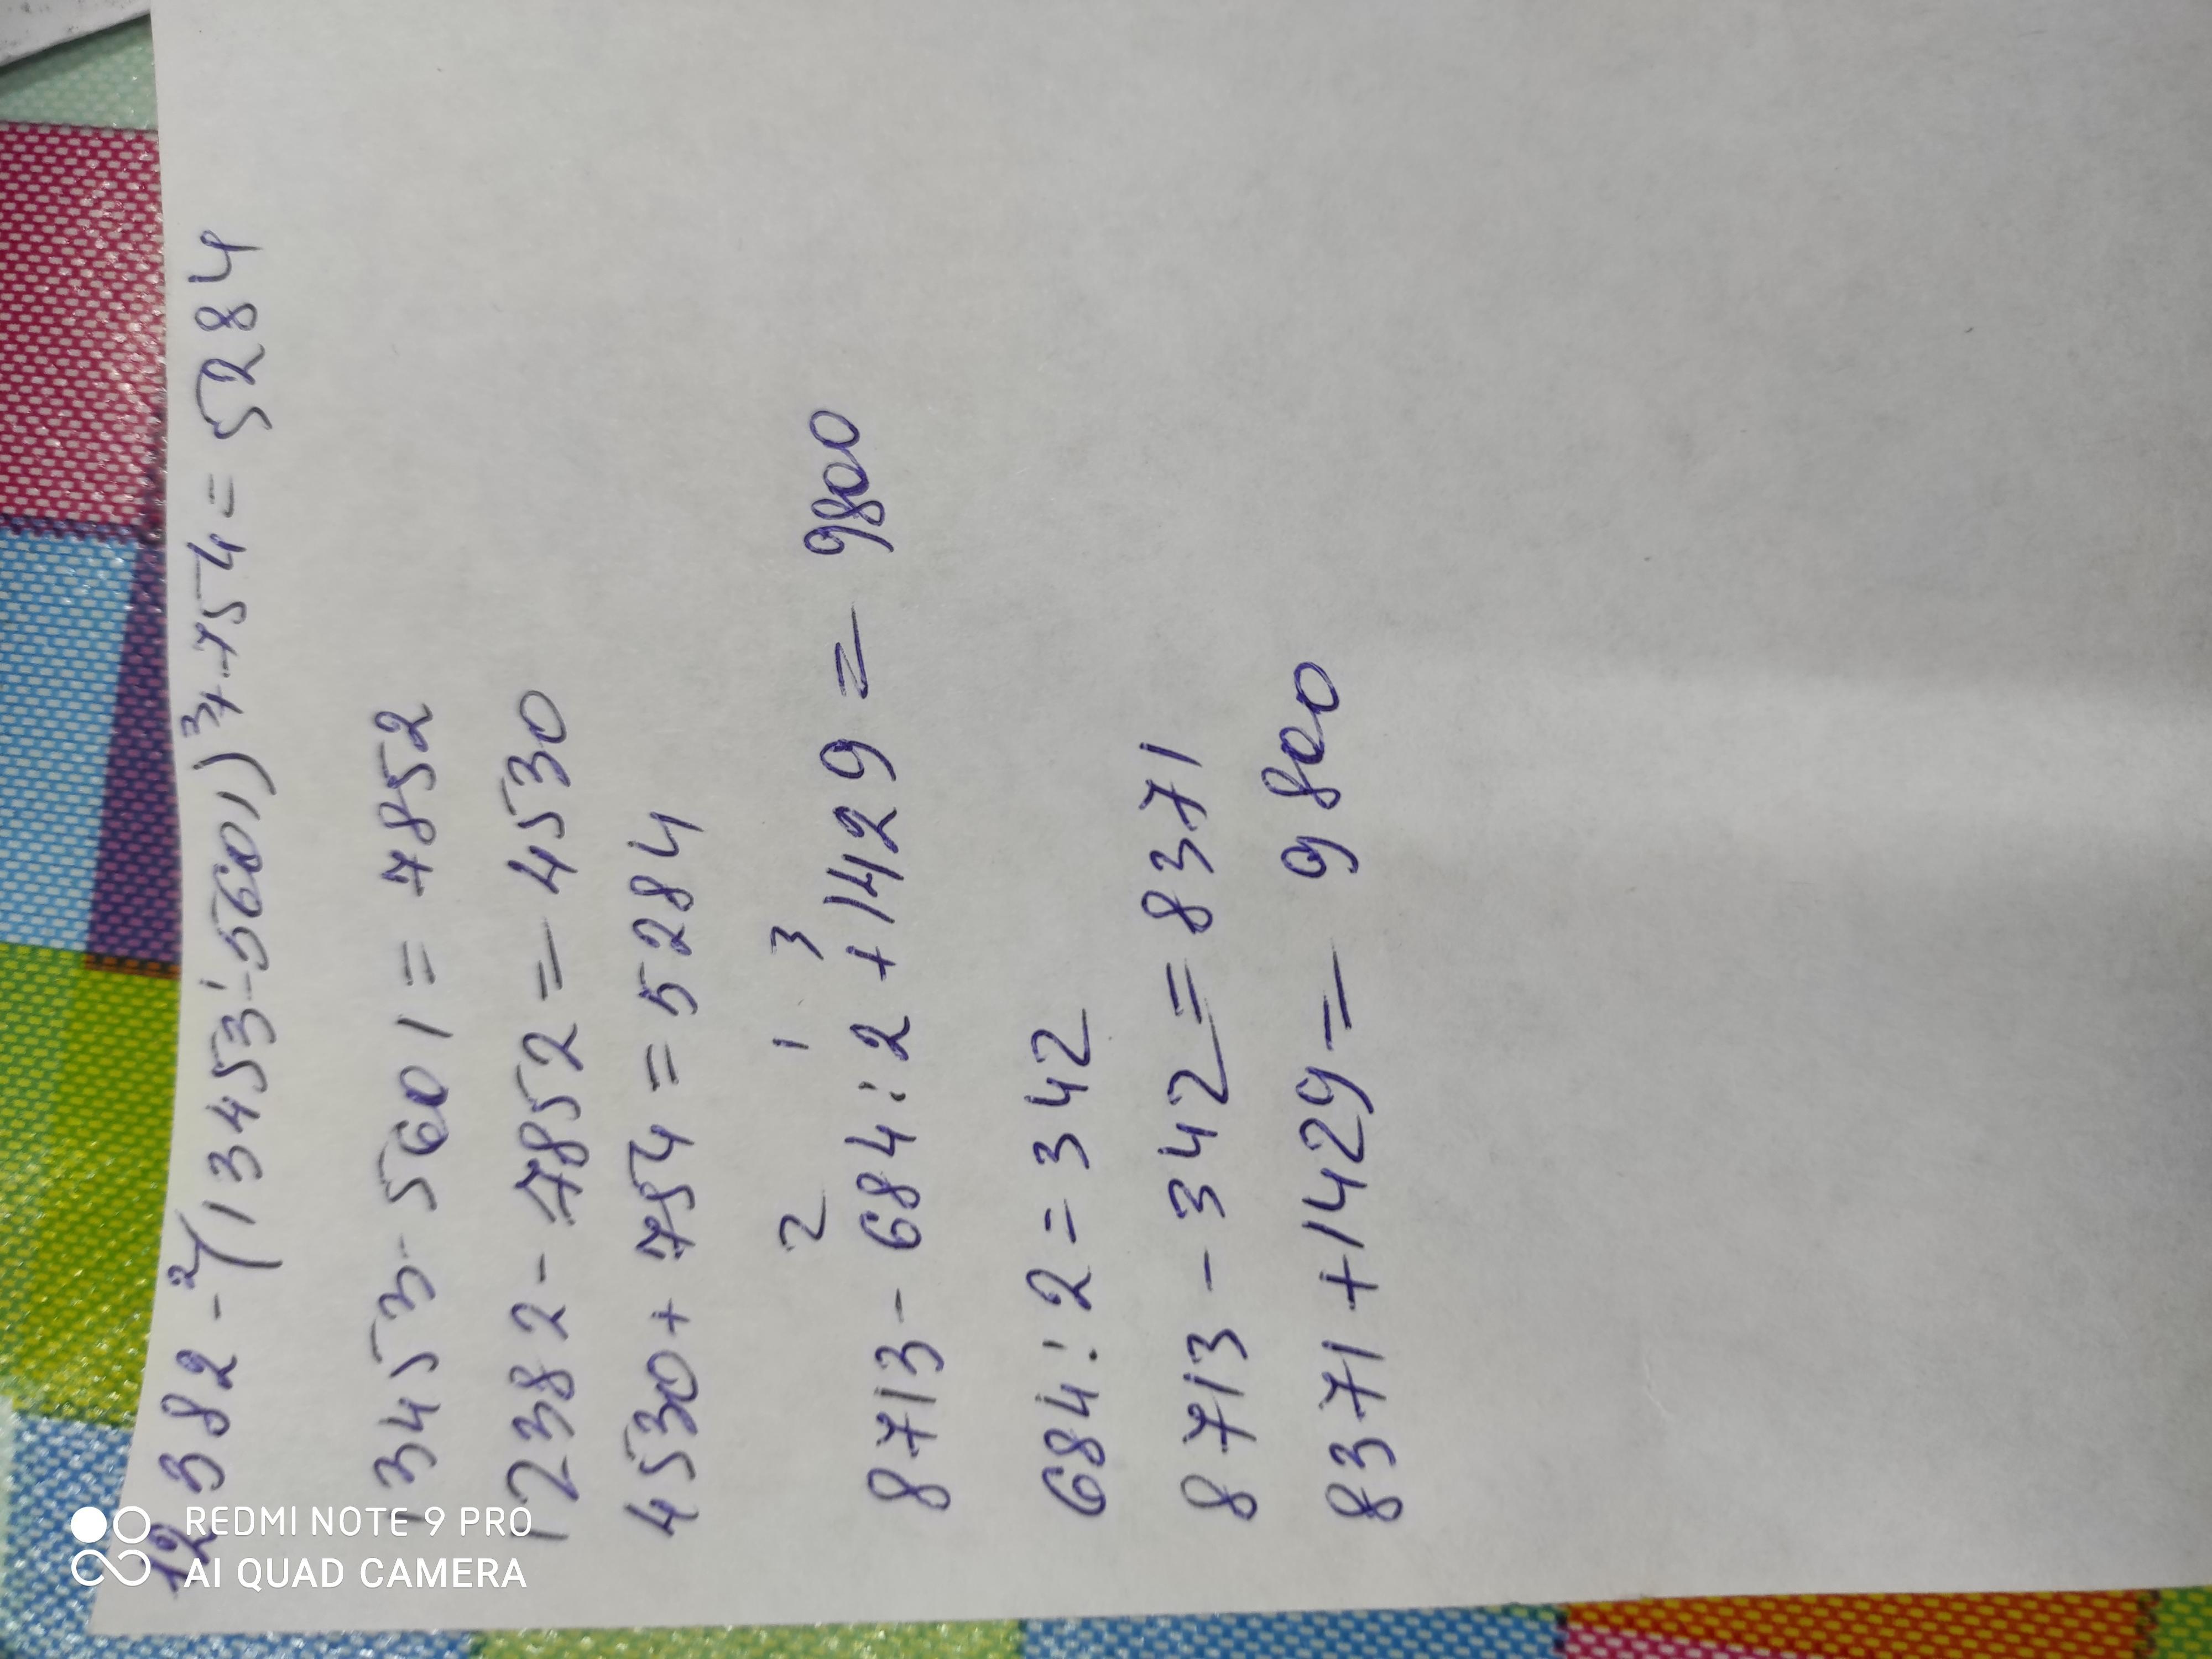 12382 -²(13453 -¹ 5601) +³ 754 = 5284
13453 - 5601 = 7852
12382 - 7852 = 4530
4530 + 754 = 5284
2 1 3
8713 - 684 : 2 + 1429 = 9800
684 : 2 = 342
8713 - 342 = 8371
8371 + 1429 = 9800
REDMI NOTE 9 PRO
AI QUAD CAMERA